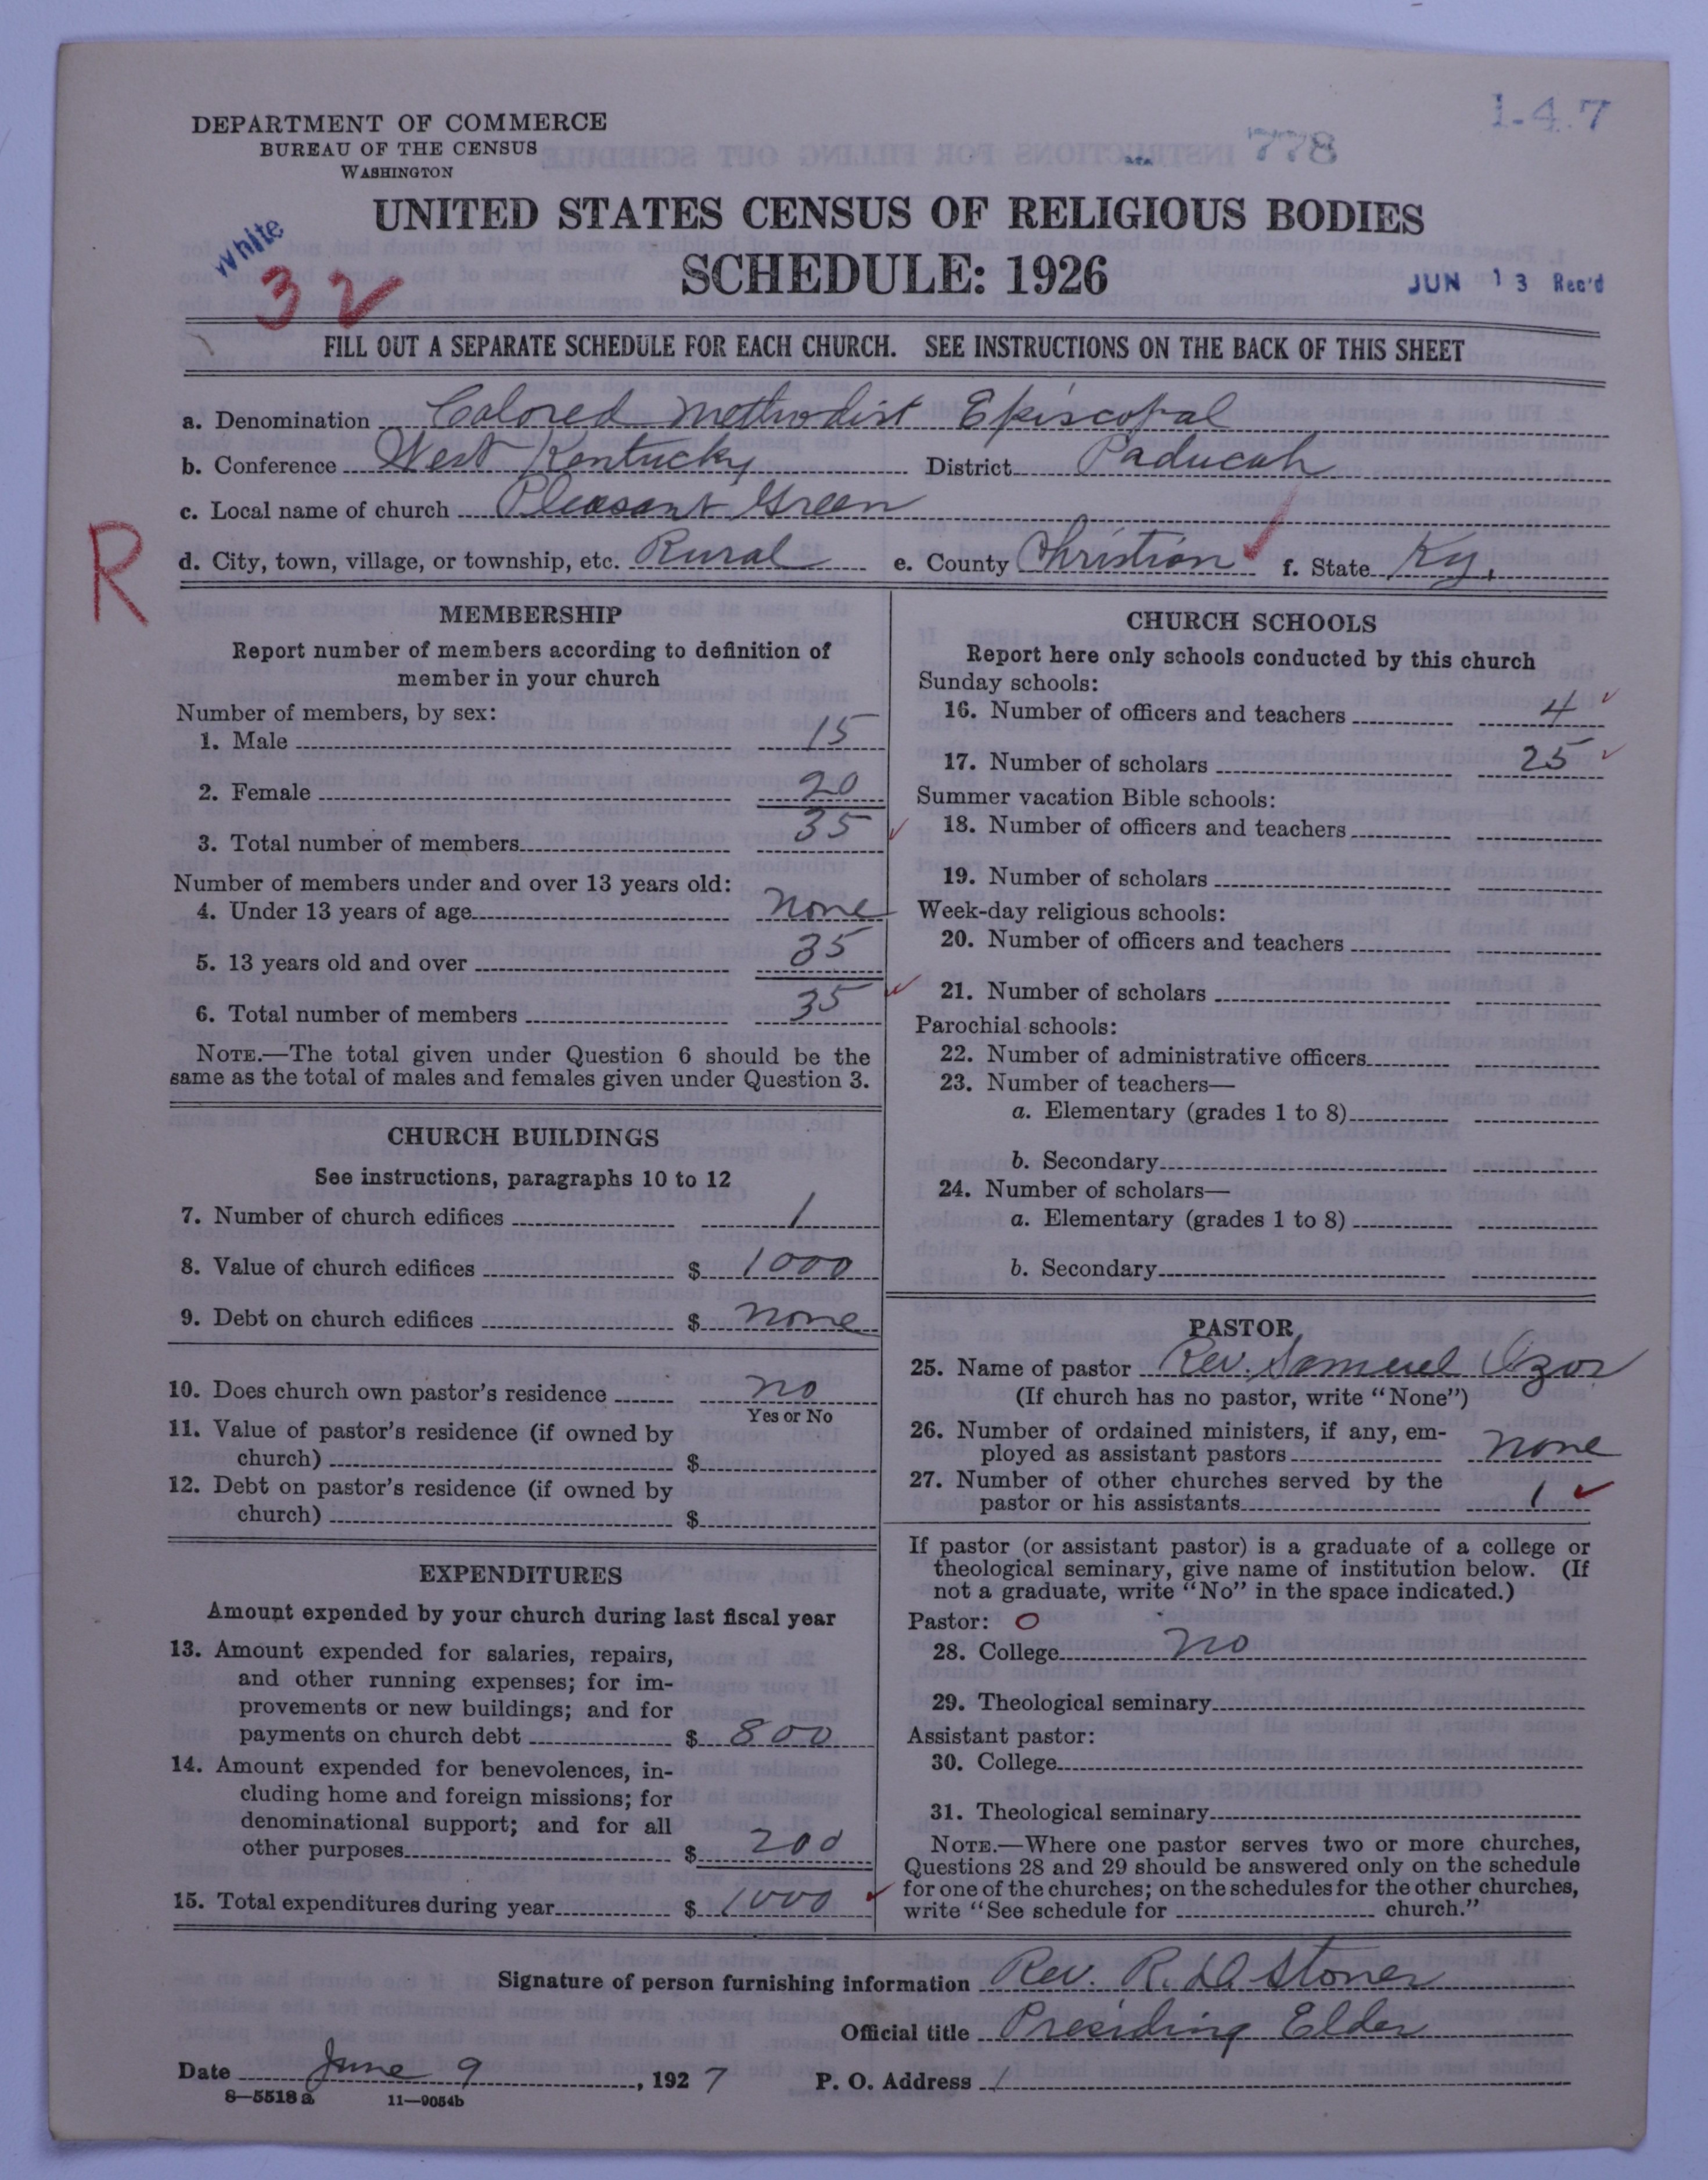 1-4.7
778
DEPARTMENT OF COMMERCE
BUREAU OF THE CENSUS
WASHINGTON
UNITED STATES CENSUS OF RELIGIOUS BODIES
SCHEDULE: 1926
White
32
JUN 13 Rec'd
FILL OUT A SEPARATE SCHEDULE FOR EACH CHURCH. SEE INSTRUCTIONS ON THE BACK OF THIS SHEET
a. Denomination Colored Methodist Episcopal
b. Conference West Kentucky District Paducah
c. Local name of church Pleasant Green
R
d. City, town, village, or township, etc. Rural e. County Christian f. State Ky.
MEMBERSHIP
Report number of members according to definition of
member in your church
Number of members, by sex:
1. Male 15
2. Female 20
3. Total number of members 35
Number of members under and over 13 years old:
4. Under 13 years of age none
5. 13 years old and over 35
6. Total number of members 35
NOTE.—The total given under Question 6 should be the
same as the total of males and females given under Question 3.
CHURCH BUILDINGS
See instructions, paragraphs 10 to 12
7. Number of church edifices 1
8. Value of church edifices $ 1000
9. Debt on church edifices $ none
10. Does church own pastor's residence no
Yes or No
11. Value of pastor's residence (if owned by
church) $
12. Debt on pastor's residence (if owned by
church) $
EXPENDITURES
Amount expended by your church during last fiscal year
13. Amount expended for salaries, repairs,
and other running expenses; for im-
provements or new buildings; and for
payments on church debt $ 800
14. Amount expended for benevolences, in-
cluding home and foreign missions; for
denominational support; and for all
other purposes $ 200
15. Total expenditures during year $ 1000
CHURCH SCHOOLS
Report here only schools conducted by this church
Sunday schools:
16. Number of officers and teachers 4
17. Number of scholars 25
Summer vacation Bible schools:
18. Number of officers and teachers
19. Number of scholars
Week-day religious schools:
20. Number of officers and teachers
21. Number of scholars
Parochial schools:
22. Number of administrative officers
23. Number of teachers—
a. Elementary (grades 1 to 8)
b. Secondary
24. Number of scholars—
a. Elementary (grades 1 to 8)
b. Secondary
PASTOR
25. Name of pastor Rev. Samuel Izor
(If church has no pastor, write "None")
26. Number of ordained ministers, if any, em-
ployed as assistant pastors none
27. Number of other churches served by the
pastor or his assistants 1
If pastor (or assistant pastor) is a graduate of a college or
theological seminary, give name of institution below. (If
not a graduate, write "No" in the space indicated.)
Pastor: O
28. College no
29. Theological seminary
Assistant pastor:
30. College
31. Theological seminary
NOTE.—Where one pastor serves two or more churches,
Questions 28 and 29 should be answered only on the schedule
for one of the churches; on the schedules for the other churches,
write "See schedule for church."
Signature of person furnishing information Rev. R. D. Stoner
Official title Presiding Elder
Date June 9, 1927 P. O. Address
8—5518 a 11—9054b